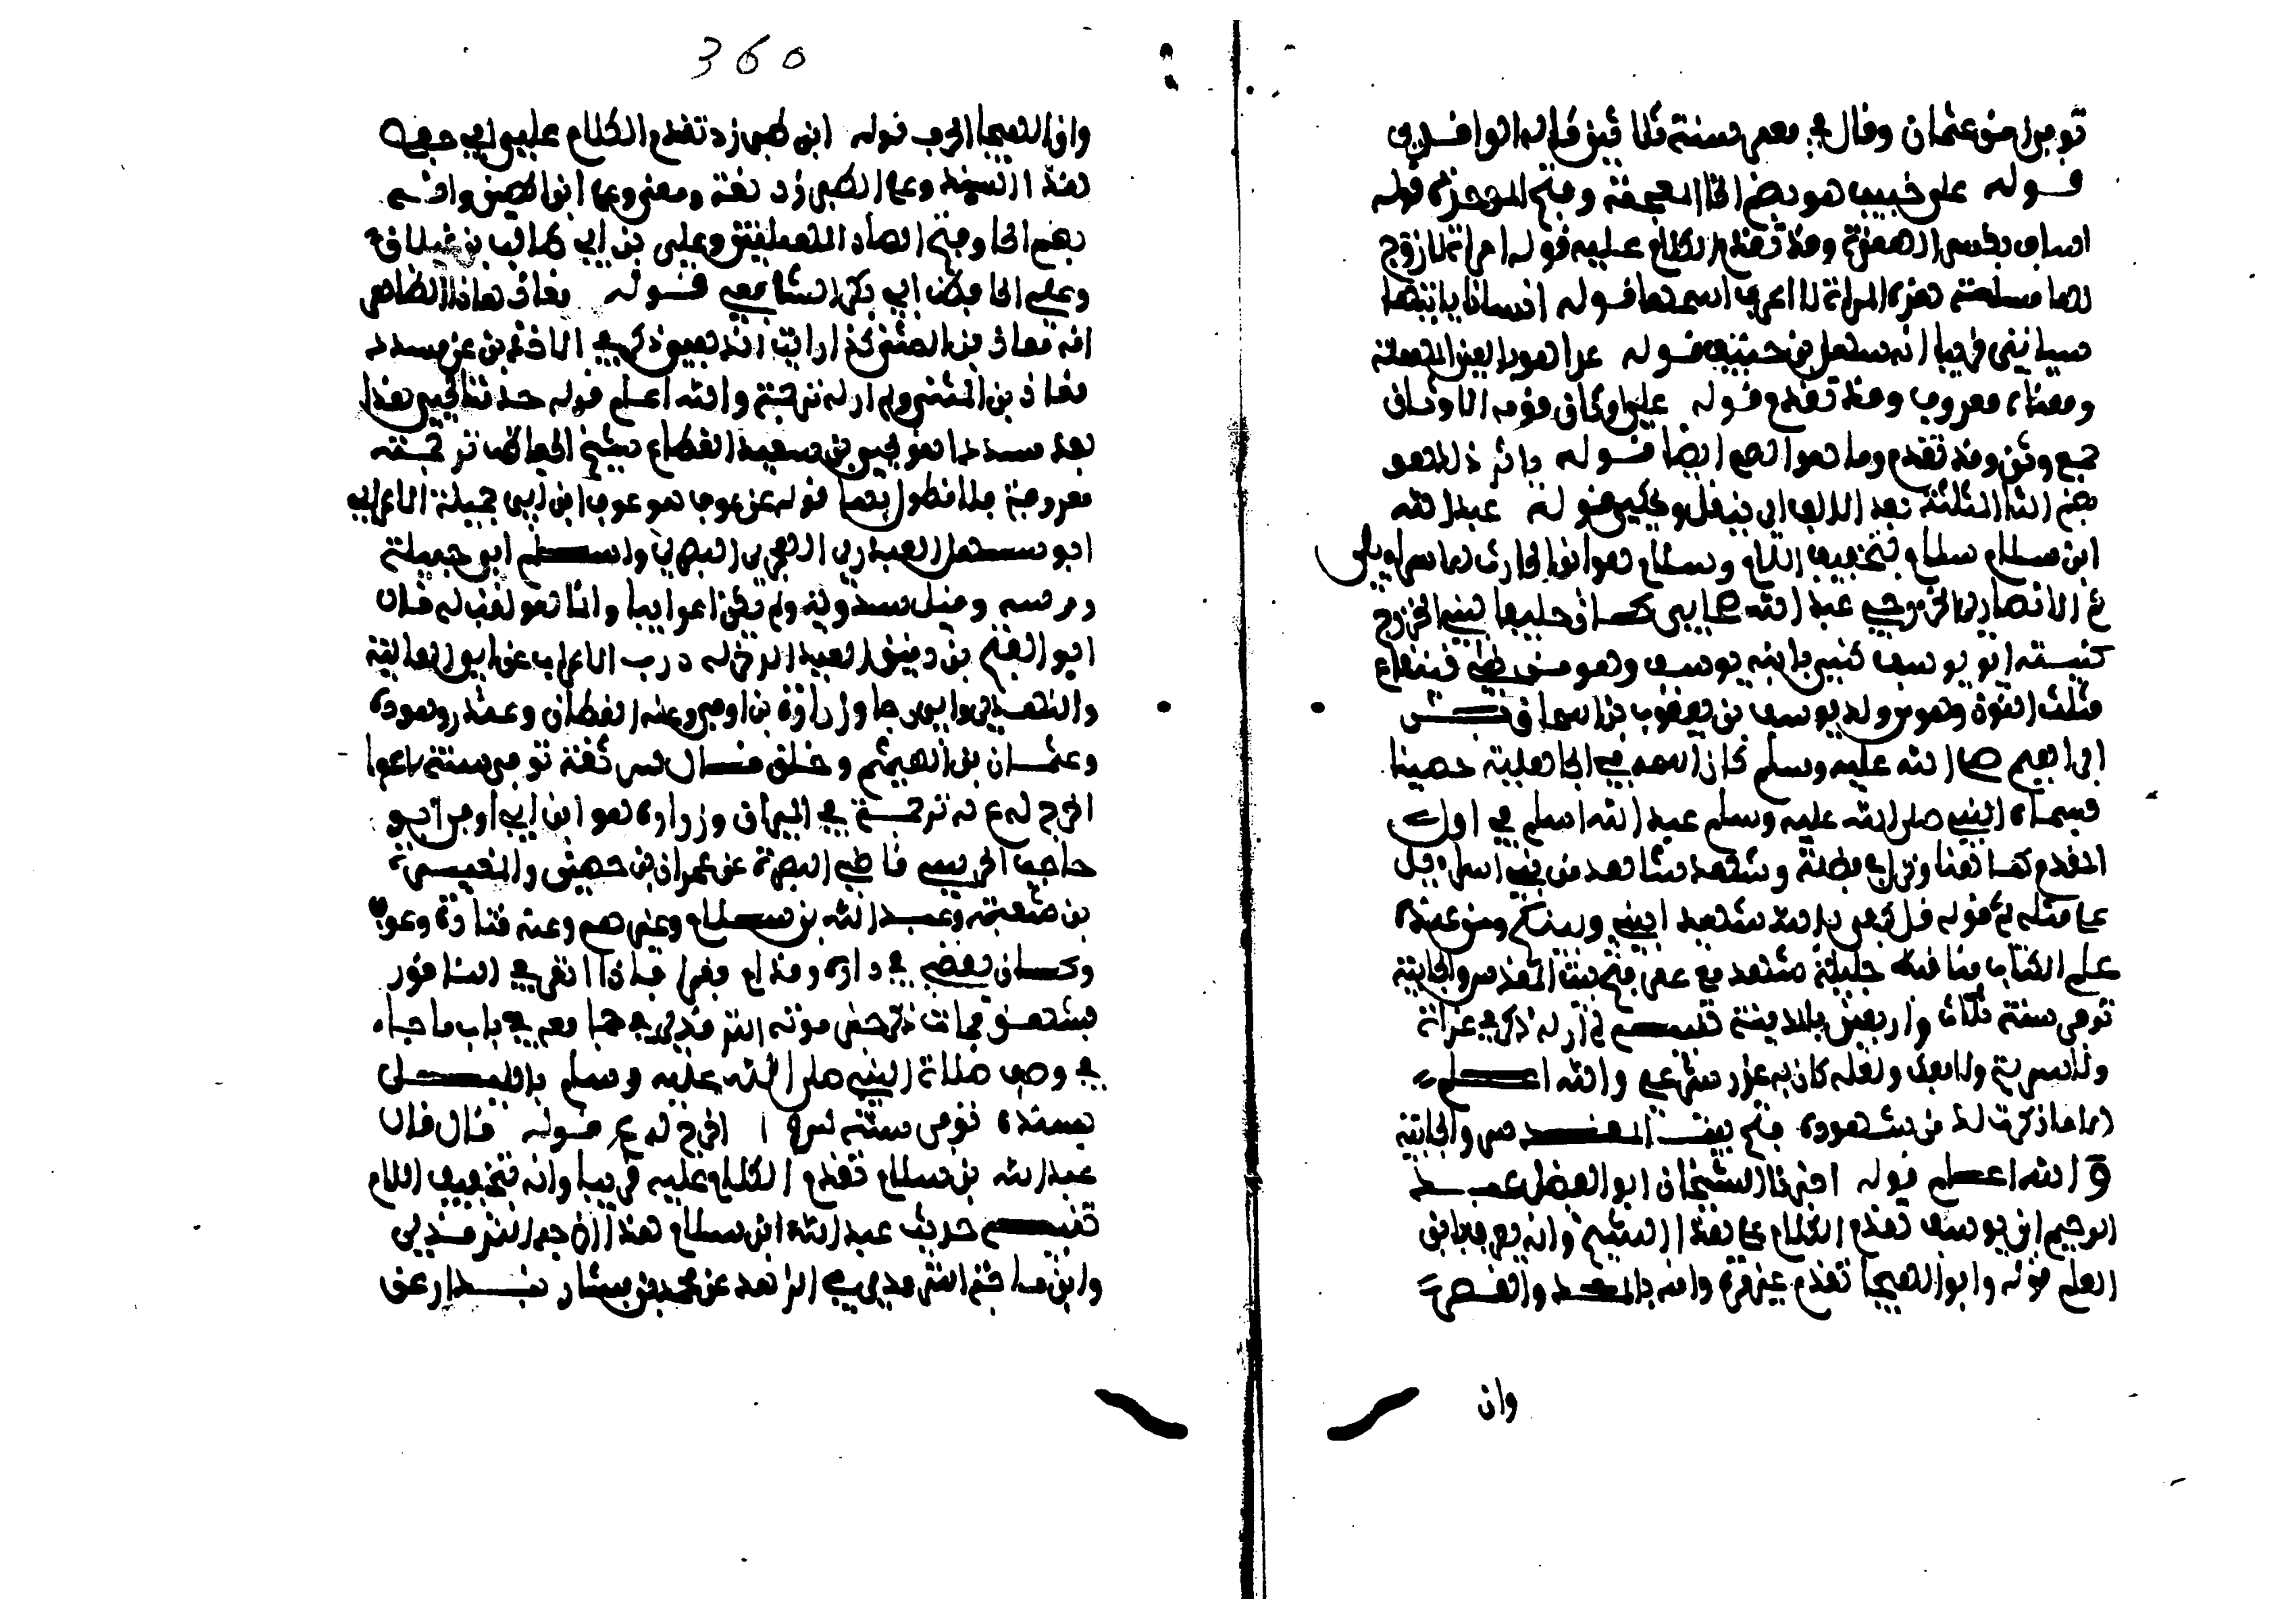 توفي زمن عثمان وقال في بعض سنة ثلاثين قاله الواقدي
قوله على خبيب هو بضم الخاء المعجمة وفتح الموحدة قوله
اساف بكسر الهمزة وقد تقدم الكلام عليه قوله امراة لا زوج
لها مسلمة هذه المراة لا اعرف اسمها قوله انسانا ياتيها
سياتي قريبا انه سهل بن حنيف قوله عدا هو بالعين المهملة
ومعناه معروف وقد تقدم قوله على اوثان قومه الاوثان
جمع وثن وقد تقدم وما هو الصنم ايضا قوله ياثر ذلك هو
بضم الثا المثلثة بعد الالف اي ينقل ويحكي قوله عبد الله
ابن سلام سلام بتخفيف اللام وسلام هو ابن الحارث الاسرايلي
ثم الانصاري الخزرجي عبد الله صحابي كان حليفا لبني الخزرج
كنيته ابو يوسف كني بابنه يوسف وهو من بني قينقاع
مثلث النون وهو من ولد يوسف بن يعقوب بن اسحاق بن
ابراهيم صلى الله عليه وسلم كان اسمه في الجاهلية حصينا
فسماه النبي صلى الله عليه وسلم عبد الله اسلم في اول
المقدم كما هنا ونزل في فضله وشهد شاهد من بني اسرايل
على مثله ثم قوله قل كفى بالله شهيدا بيني وبينكم ومن عنده
علم الكتاب مناقبه جليلة شهد مع عمر فتح بيت المقدس والجابية
توفي سنة ثلاث واربعين بالمدينة تنبيه لم ار له ذكر في غزاة
ولا سرية ولا بعث ولعله كان به عذر شرعي والله اعلم
اما ما ذكرت لك من شهوده فتح بيت المقدس والجابية
والله اعلم قوله اخبرنا الشيخان ابو الفضل عبد
الرحيم ابن يوسف تقدم الكلام على هذا الشيخ وانه يعرف بابن
العلم قوله وابو الهيجا تقدم غير مرة وانه بالمد والقصر
وان
360
وان الهيجا الحرب قوله ابن طبرزد تقدم الكلام على ابي حفص
هذا المسند وعلى الطبرزد لغة ومعنى وعلى ابن الحصين وانه
بضم الحا وفتح الصاد المهملتين وعلى بن ابي طالب بن غيلان
وعلى الحافظ ابي بكر الشافعي قوله معاذ هذا الظاهر
انه معاذ بن المثنى كذا رايت الذهبي ذكر في الاخذين عن مسدد
معاذ بن المثنى ولم ار له ترجمة والله اعلم قوله حدثنا يحيى هذا
بعد مسدد هو يحيى بن سعيد القطان شيخ الحفاظ ترجمته
معروفة فلا نطول بها قوله عن عوف هو عوف ابن ابي جميلة الاعرابي
ابو سهل العبدي الهجري البصري واسم ابو جميلة
وقيل بندويه ولم يكن اعرابيا وانما هو لقب له قال
ابو الفتح بن دقيق العيد الدخوله درب الاعراب عن ابي العالية
والنهدي وابي رجا وزرارة بن اوفى وعنه القطان وغندر وهوذة
وعثمان بن الهيثم وخلق قال س ثقة توفي سنة
اخرج له ع له ترجمة في الميزان وزرارة هو ابن ابي اوفى ابو
حاجب الحرشي قاضي البصرة عن عمران بن حصين والمغيرة
بن شعبة وعبد الله بن سلام وغيرهم وعنه قتادة وعوف
وكان يقص في داره وقد ام فقرا فاذا نقر في الناقور
فشهق فمات ذكر خبر موته الترمذي في جامعه في باب ما جاء
في وصف صلاة النبي صلى الله عليه وسلم بالليل
بسنده توفي سنة اخرج له ع قوله قال قال
عبد الله بن سلام تقدم الكلام عليه قريبا وانه بتخفيف اللام
تنبيه حديث عبد الله ابن سلام هذا اخرجه الترمذي
وابن ماجة الترمذي في الزهد عن محمد بن بشار بندار عن